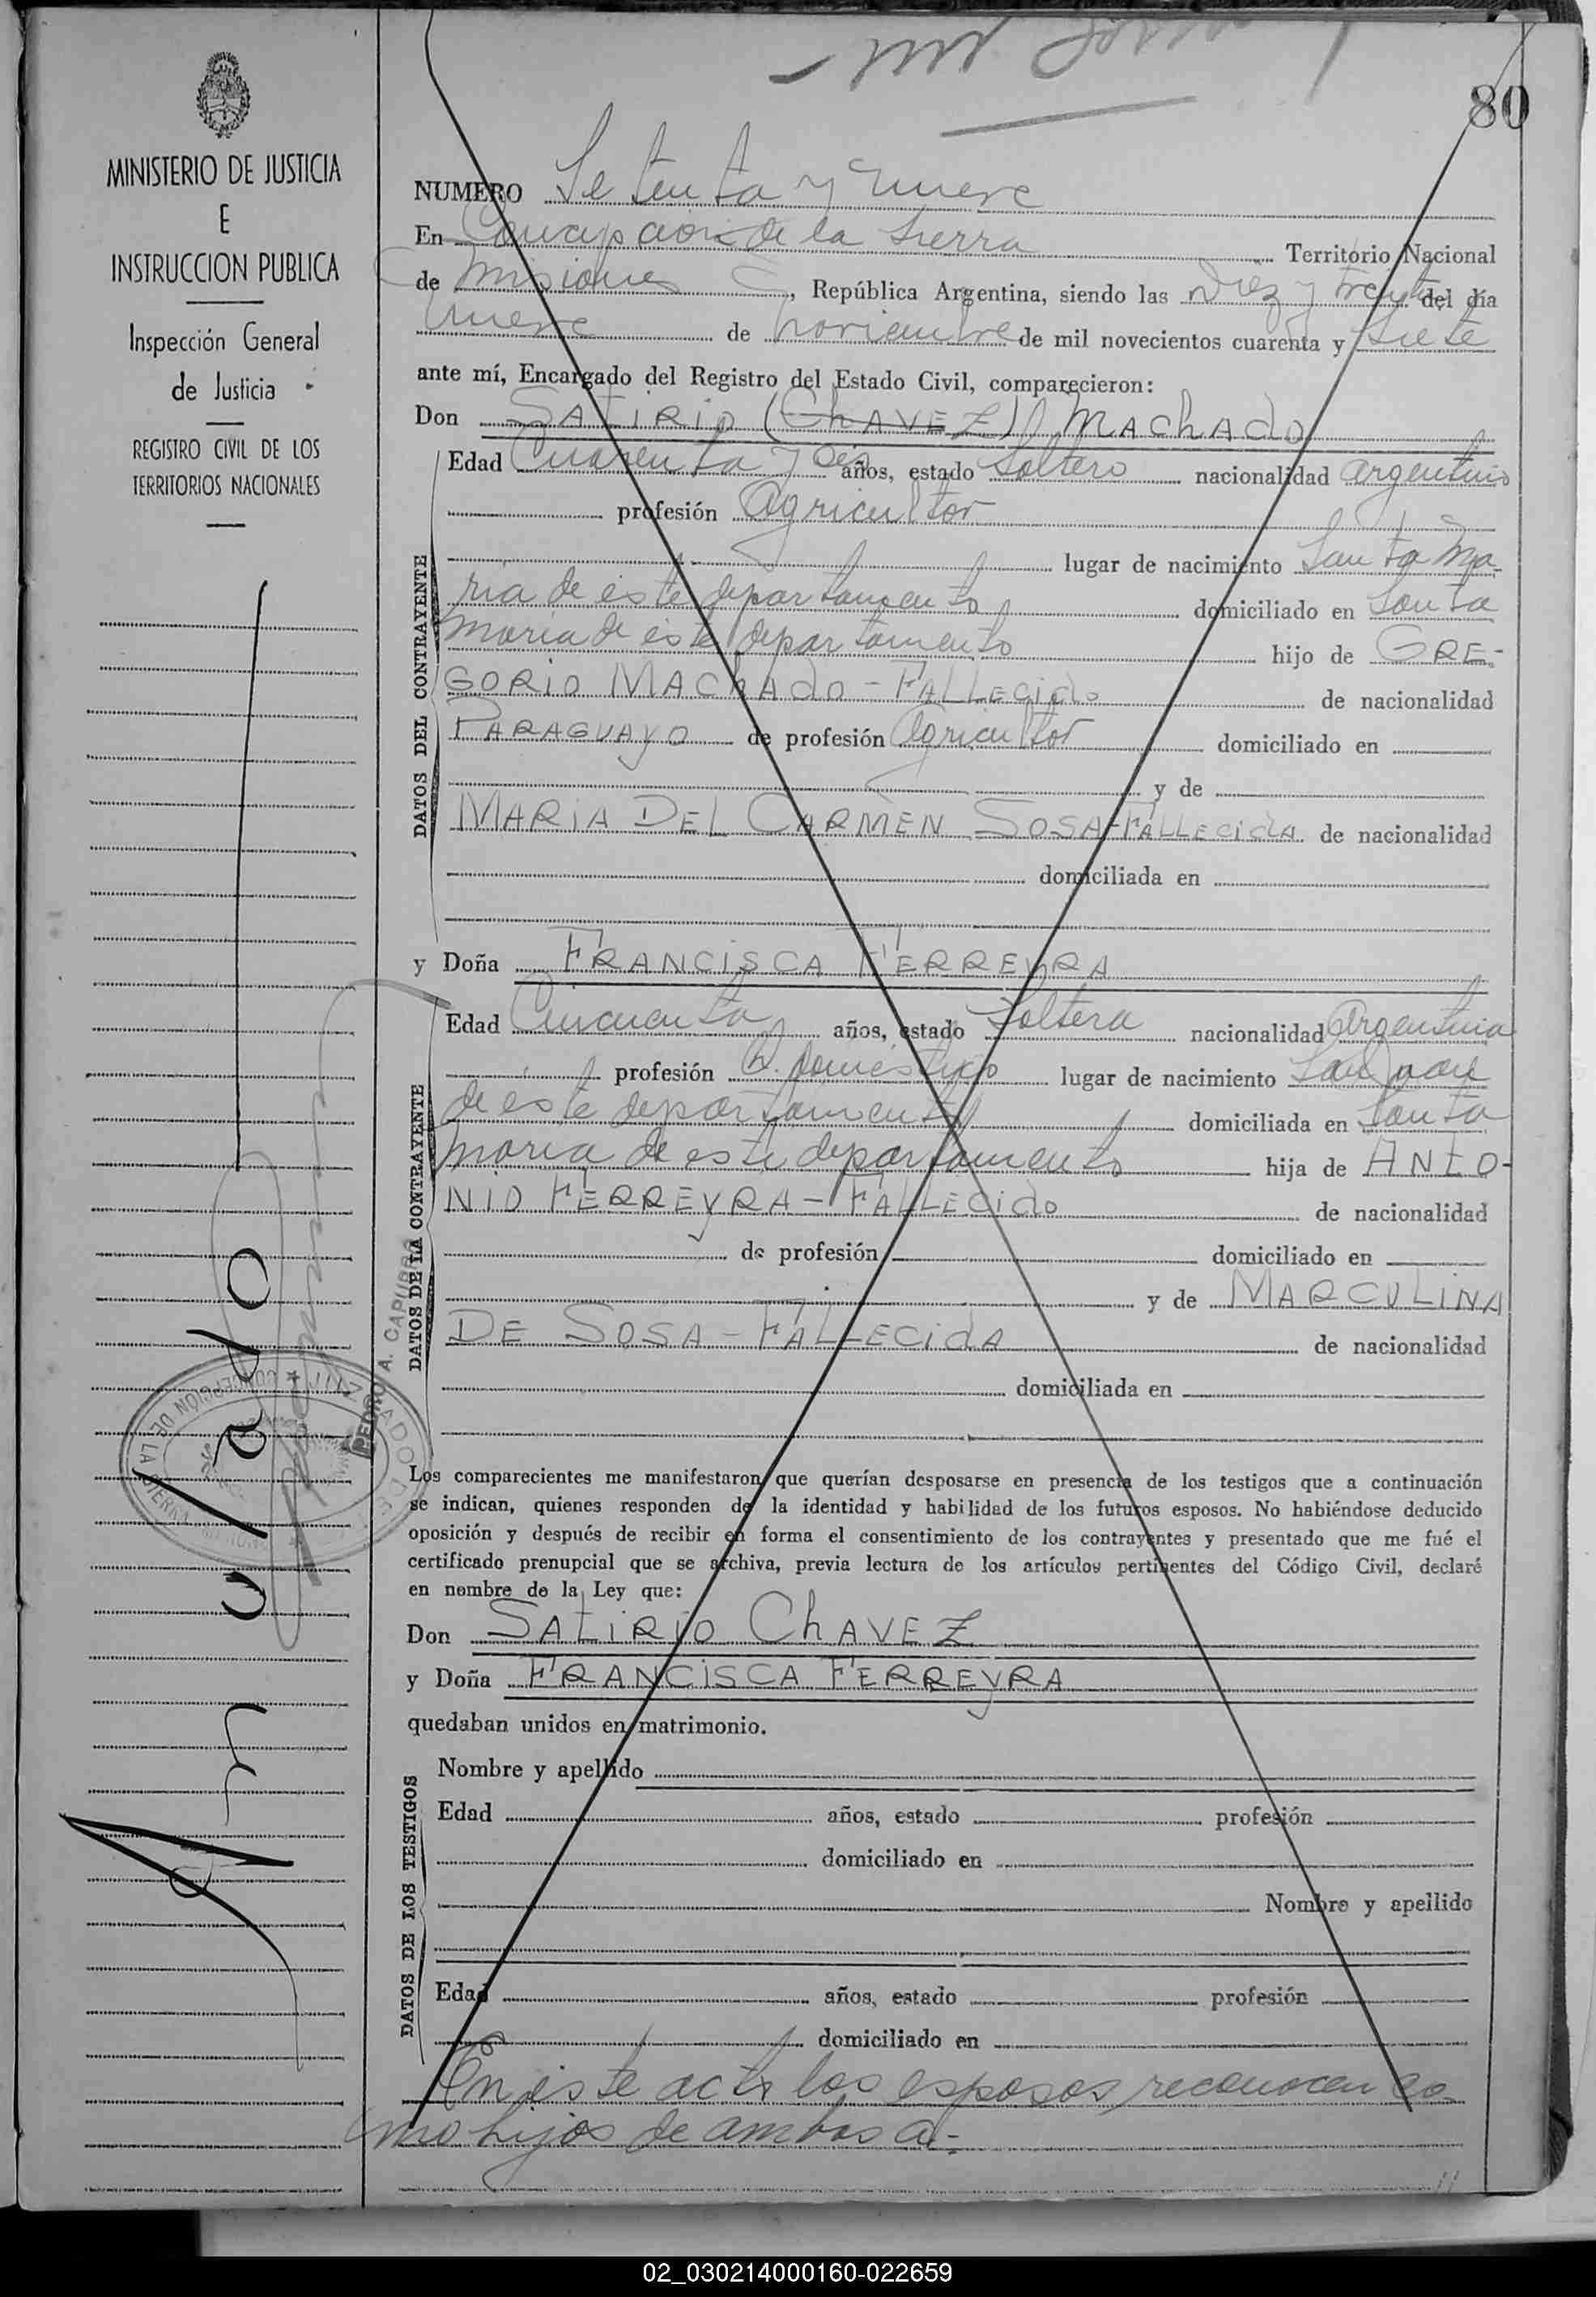 80
MINISTERIO DE JUSTICIA
E
INSTRUCCION PUBLICA
Inspección General
de Justicia
REGISTRO CIVIL DE LOS
TERRITORIOS NACIONALES
Anulado
CONCEPCION DE LA SIERRA
PEDRO A. CAPURRO
NUMERO Setenta y nueve
En Concepción de la Sierra Territorio Nacional
de Misiones, República Argentina, siendo las Diez y treinta del día
nueve de noviembre de mil novecientos cuarenta y siete
ante mí, Encargado del Registro del Estado Civil, comparecieron:
Don SATIRIO (ChAVEZ) MAChAdo
Edad Cuarenta y años, estado Soltero nacionalidad argentino
profesión Agricultor
lugar de nacimiento Santa Ma-
ría de este departamento domiciliado en Santa
maría de este departamento hijo de GRE-
GORIO MAChAdo - FALLECido de nacionalidad
PARAGUAYO de profesión Agricultor domiciliado en
y de
MARiA DEL CARMEN SOSA-FALLECidA de nacionalidad
domiciliada en
y Doña FRANCiSCA FERREYRA
Edad Cincuenta años, estado Soltera nacionalidad Argentina
profesión Q. Doméstico lugar de nacimiento San Juan
de este departamento domiciliada en Santa
maria de este departamento hija de ANTO-
NIO FERREYRA - FALLECido de nacionalidad
de profesión domiciliado en
y de MARCULiNA
DE SOSA - FALLECidA de nacionalidad
domiciliada en
DATOS DEL CONTRAYENTE
DATOS DE LA CONTRAYENTE
Los comparecientes me manifestaron que querían desposarse en presencia de los testigos que a continuación
se indican, quienes responden de la identidad y habilidad de los futuros esposos. No habiéndose deducido
oposición y después de recibir en forma el consentimiento de los contrayentes y presentado que me fué el
certificado prenupcial que se archiva, previa lectura de los artículos pertinentes del Código Civil, declaré
en nombre de la Ley que:
Don SATIRIO ChAVEZ
y Doña FRANCiSCA FERREYRA
quedaban unidos en matrimonio.
Nombre y apellido
Edad años, estado profesión
domiciliado en
Nombre y apellido
Edad años, estado profesión
domiciliado en
DATOS DE LOS TESTIGOS
En este acto los esposos reconocen co-
mo hijos de ambos a:-
02_030214000160-022659